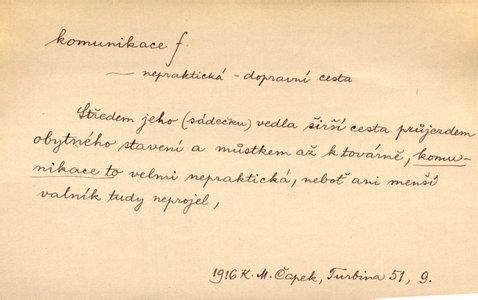 komunikace f.
~ nepraktická - dopravní cesta
Středem jeho (sádečku) vedla širší cesta průjezdem
obytného stavení a můstkem až k továrně, komu-
nikace to velmi nepraktická, neboť ani menší
valník tudy neprojel,
1916 K. M. Čapek, Turbina 51, 9.